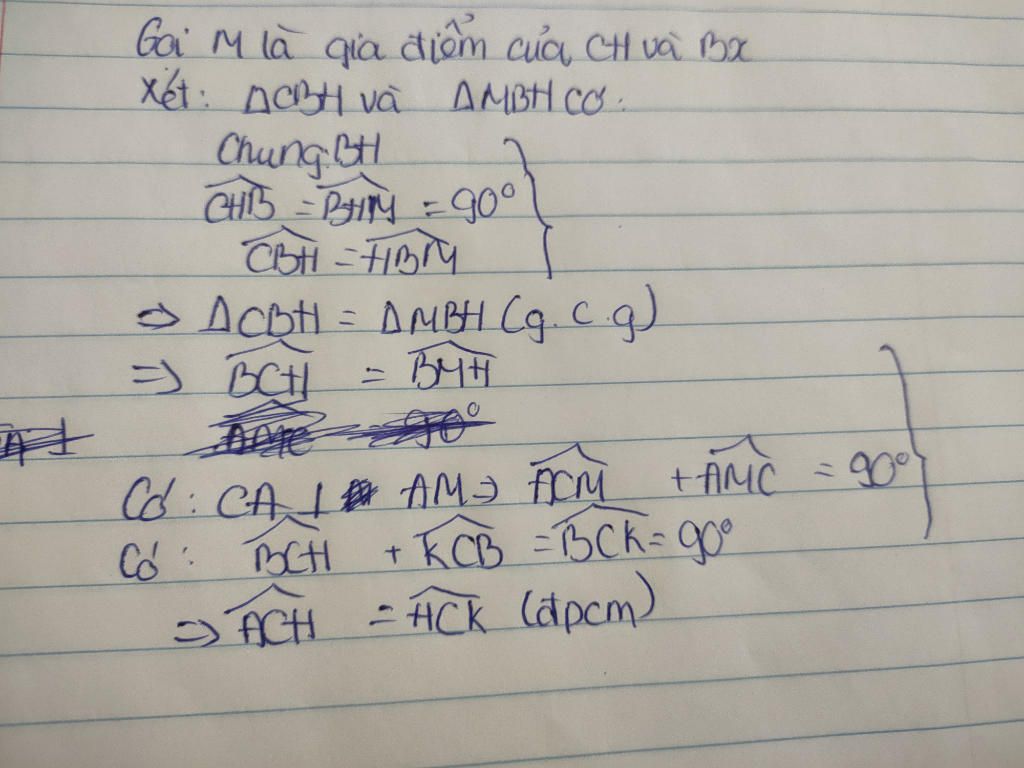 Gọi M là gia điểm của CH và Bx
Xét: ΔCBH và ΔMBH có:
Chung: BH
CHB = BHM = 90°
CBH = HBM
⇒ ΔCBH = ΔMBH (g.c.g)
⇒ BCH = BMH
Có: CA ⊥ AM ⇒ ACM + AMC = 90°
Có: BCH + KCB = BCK = 90°
⇒ ACH = HCK (đpcm)